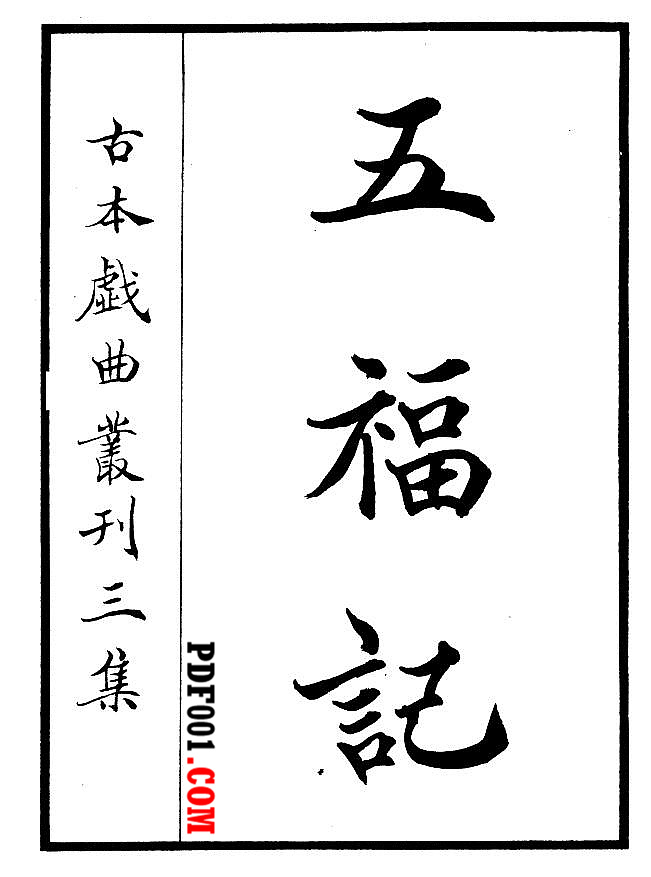 五福記
古本戯曲叢刊三集
PDF001.COM